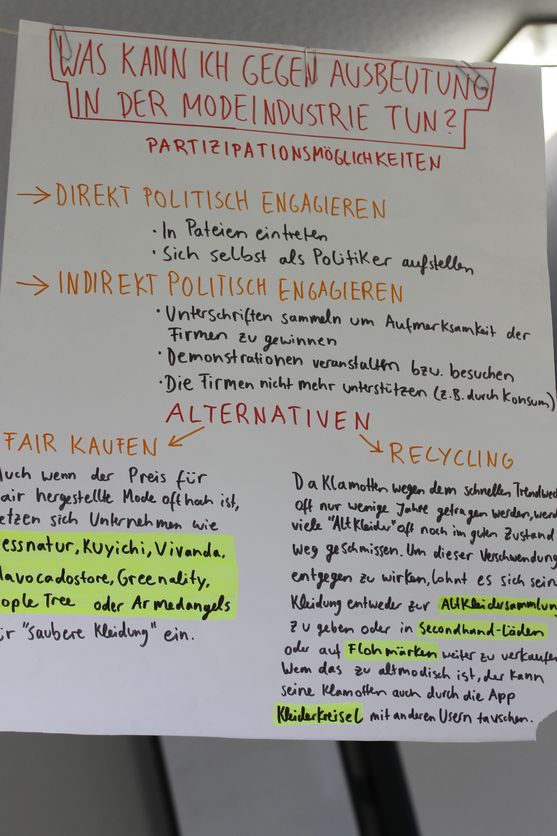 WAS KANN ICH GEGEN AUSBEUTUNG
IN DER MODEINDUSTRIE TUN?
PARTIZIPATIONSMÖGLICHKEITEN
→ DIREKT POLITISCH ENGAGIEREN
· In Pateien eintreten
· Sich selbst als Politiker aufstellen
→ INDIREKT POLITISCH ENGAGIEREN
· Unterschriften sammeln um Aufmerksamkeit der
Firmen zu gewinnen
· Demonstrationen veranstalten bzw. besuchen
· Die Firmen nicht mehr unterstützen (z.B. durch Konsum)
ALTERNATIVEN
FAIR KAUFEN
Auch wenn der Preis für
air hergestellte Mode oft hoch ist,
etzen sich Unternehmen wie
essnatur, Kuyichi, Vivanda,
avocadostore, Greenality,
ople Tree oder Armedangels
ür "saubere Kleidung" ein.
RECYCLING
Da Klamotten wegen dem schnellen Trendwec
oft nur wenige Jahre getragen werden, werd
viele "Altkleider" oft noch im guten Zustand
weg geschmissen. Um dieser Verschwendung
entgegen zu wirken, lohnt es sich sein
Kleidung entweder zur Altkleidersammlun
zu geben oder in Secondhand-Läden
oder auf Flohmärken weiter zu verkaufe
Wem das zu altmodisch ist, der kann
seine Klamotten auch durch die App
Kleiderkreisel mit anderen Usern tauschen.